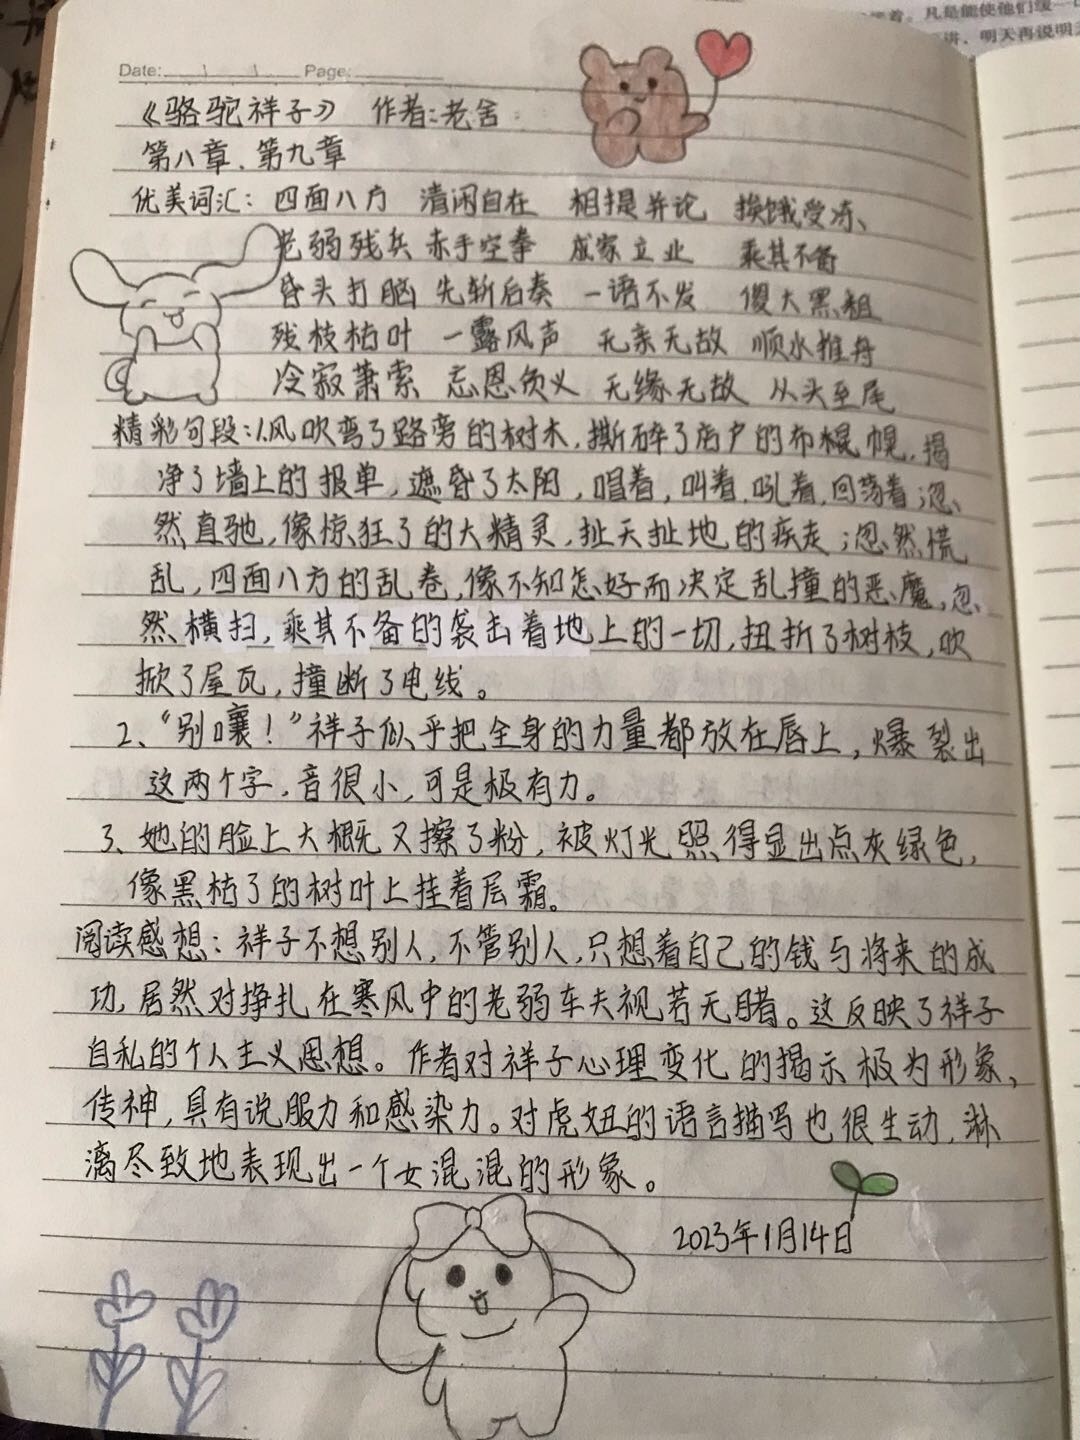 着。凡是能使他们缓一口
讲,明天再说明天
Date: Page:
《骆驼祥子》 作者:老舍
第八章、第九章
优美词汇: 四面八方 清闲自在 相提并论 挨饿受冻、
老弱残兵 赤手空拳 成家立业 乘其不备
昏头打脑 先斩后奏 一语不发 傻大黑粗
残枝枯叶 一露风声 无亲无故 顺水推舟
冷寂萧索 忘恩负义 无缘无故 从头至尾
精彩句段:1.风吹弯了路旁的树木,撕碎了店户的布棍幌,揭
净了墙上的报单,遮昏了太阳,唱着,叫着,吼着,回荡着;忽、
然直驰,像惊狂了的大精灵,扯天扯地的疾走;忽然慌
乱,四面八方的乱卷,像不知怎好而决定乱撞的恶魔,忽、
然横扫,乘其不备的袭击着地上的一切,扭折了树枝,吹
掀了屋瓦,撞断了电线。
2、“别嚷!”祥子似乎把全身的力量都放在唇上,爆裂出
这两个字,音很小,可是极有力。
3、她的脸上大概又擦了粉,被灯光照得显出点灰绿色,
像黑枯了的树叶上挂着层霜。
阅读感想:祥子不想别人,不管别人,只想着自己的钱与将来的成
功,居然对挣扎在寒风中的老弱车夫视若无睹。这反映了祥子
自私的个人主义思想。作者对祥子心理变化的揭示极为形象,
传神,具有说服力和感染力。对虎妞的语言描写也很生动,淋
漓尽致地表现出一个女混混的形象。
2023年1月14日